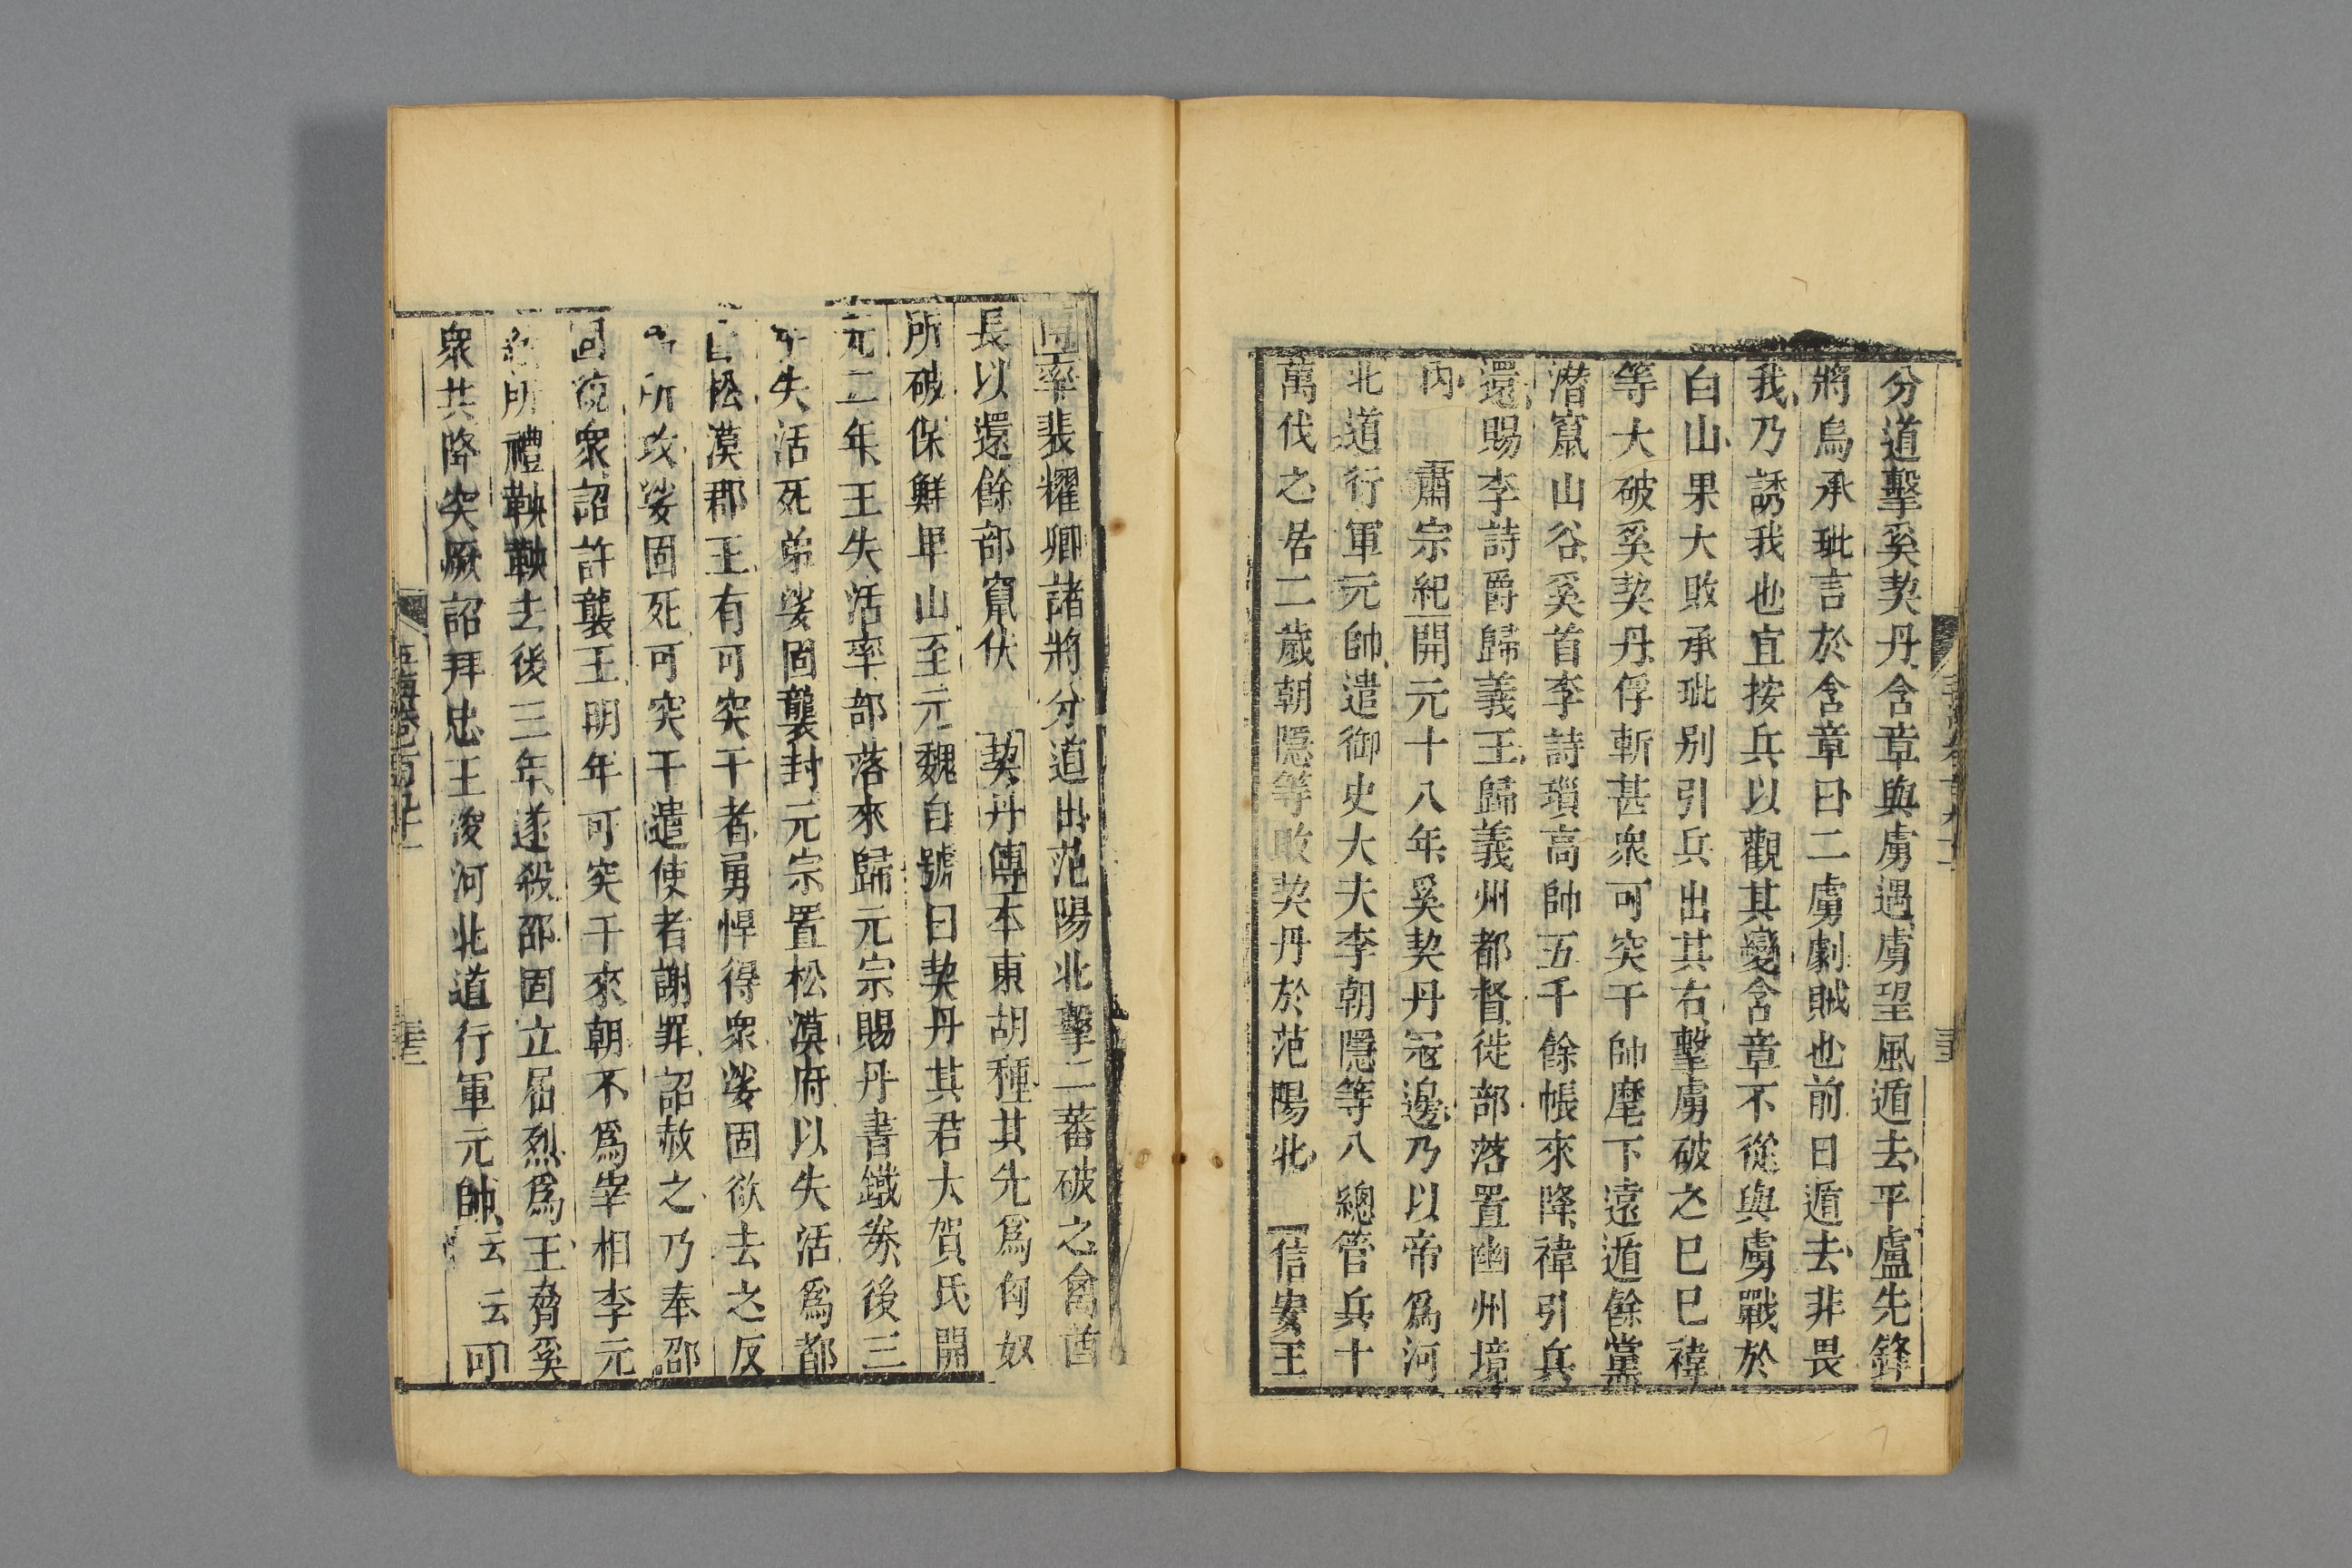 分道擊奚契丹含章與虜遇虜望風遁去平盧先鋒
將烏承玼言於含章曰二虜劇賊也前日遁去非畏
我乃誘我也宜按兵以觀其變含章不從與虜戰於
白山果大敗承玼别引兵出其右擊虜破之巳巳禕
等大破奚契丹俘斬甚衆可突干帥麾下遠遁餘黨
潜竄山谷奚首李詩瑣高帥五千餘帳來降禕引兵
還賜李詩爵歸義王歸義州都督徙部落置幽州境
内 肅宗紀開元十八年奚契丹冦邊乃以帝爲河
北道行軍元帥遣御史大夫李朝隱等八總管兵十
萬伐之居二歲朝隱等敗契丹於范陽北 信安王
率裴耀卿諸將分道出范陽北擊二蕃破之禽酋
長以還餘部竄伏 契丹傳本東胡種其先爲匈奴
所破保鮮卑山至元魏自號曰契丹其君大賀氏開
元二年王失活率部落來歸元宗賜丹書鐵券後三
失活死弟娑固襲封元宗置松漠府以失活爲都
松漠郡王有可突干者勇悍得衆娑固欲去之反
所攻娑固死可突干遣使者謝罪詔赦之乃奉邵
固統衆詔許襲王明年可突干來朝不爲宰相李元
所禮鞅鞅去後三年遂殺邵固立屈烈爲王脅奚
衆共降突厥詔拜忠王浚河北道行軍元帥云云可